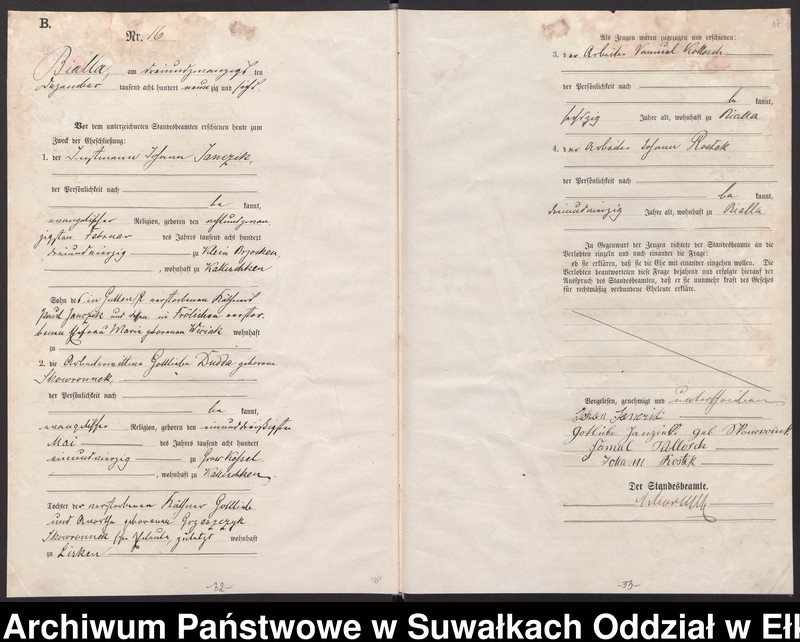 B.
Nr. 16
Bialla, am dreiundzwanzigsten ten
Dezember tausend acht hundert neun zig und sechs
Vor dem unterzeichneten Standesbeamten erschienen heute zum
Zweck der Eheschließung:
1. der Instmann Johann Janczik,
der Persönlichkeit nach
be kannt,
evangelischer Religion, geboren den achtundzwan
zigsten Februar des Jahres tausend acht hundert
dreiundvierzig zu Klein Brzosken
, wohnhaft zu Kakuschken
Sohn des in verstorbenen
Janczik und dessen in Frölichen verstor
benen Ehefrau Marie geborenen wohnhaft
zu
2. die Arbeiterwittwe Gottliebe Dudda geborene
Skowronnek,
der Persönlichkeit nach
be kannt,
evangelischer Religion, geboren den einunddreißigsten
Mai des Jahres tausend acht hundert
einundvierzig zu Gross Kessel
, wohnhaft zu Kakuschken
Tochter der verstorbenen Käthner Gottlieb
und geborenen Grzeszczyk
Skowronnek zuletzt wohnhaft
zu Lisken
-32-
Als Zeugen waren zugezogen und erschienen:
3. der Arbeiter Samuel Kollosch
der Persönlichkeit nach
be kannt,
sechszig Jahre alt, wohnhaft zu Bialla
4. der Arbeiter Johann Rostek
der Persönlichkeit nach
be kannt,
dreiundvierzig Jahre alt, wohnhaft zu Bialla
In Gegenwart der Zeugen richtete der Standesbeamte an die
Verlobten einzeln und nach einander die Frage:
ob sie erklären, daß sie die Ehe mit einander eingehen wollen. Die
Verlobten beantworteten diese Frage bejahend und erfolgte hierauf der
Ausspruch des Standesbeamten, daß er sie nunmehr kraft des Gesetzes
für rechtmäßig verbundene Eheleute erkläre.
Vorgelesen, genehmigt und unterschrieben
Johan Janczik
Gotliebe geb Skonronnek
Samal Kollosch
Johann Rostek
Der Standesbeamte.
-33-
Archiwum Państwowe w Suwałkach Oddział w Eł